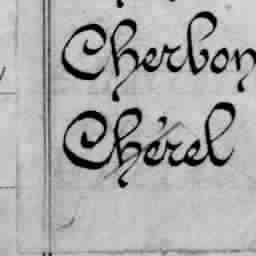 Cherbon
Chérel